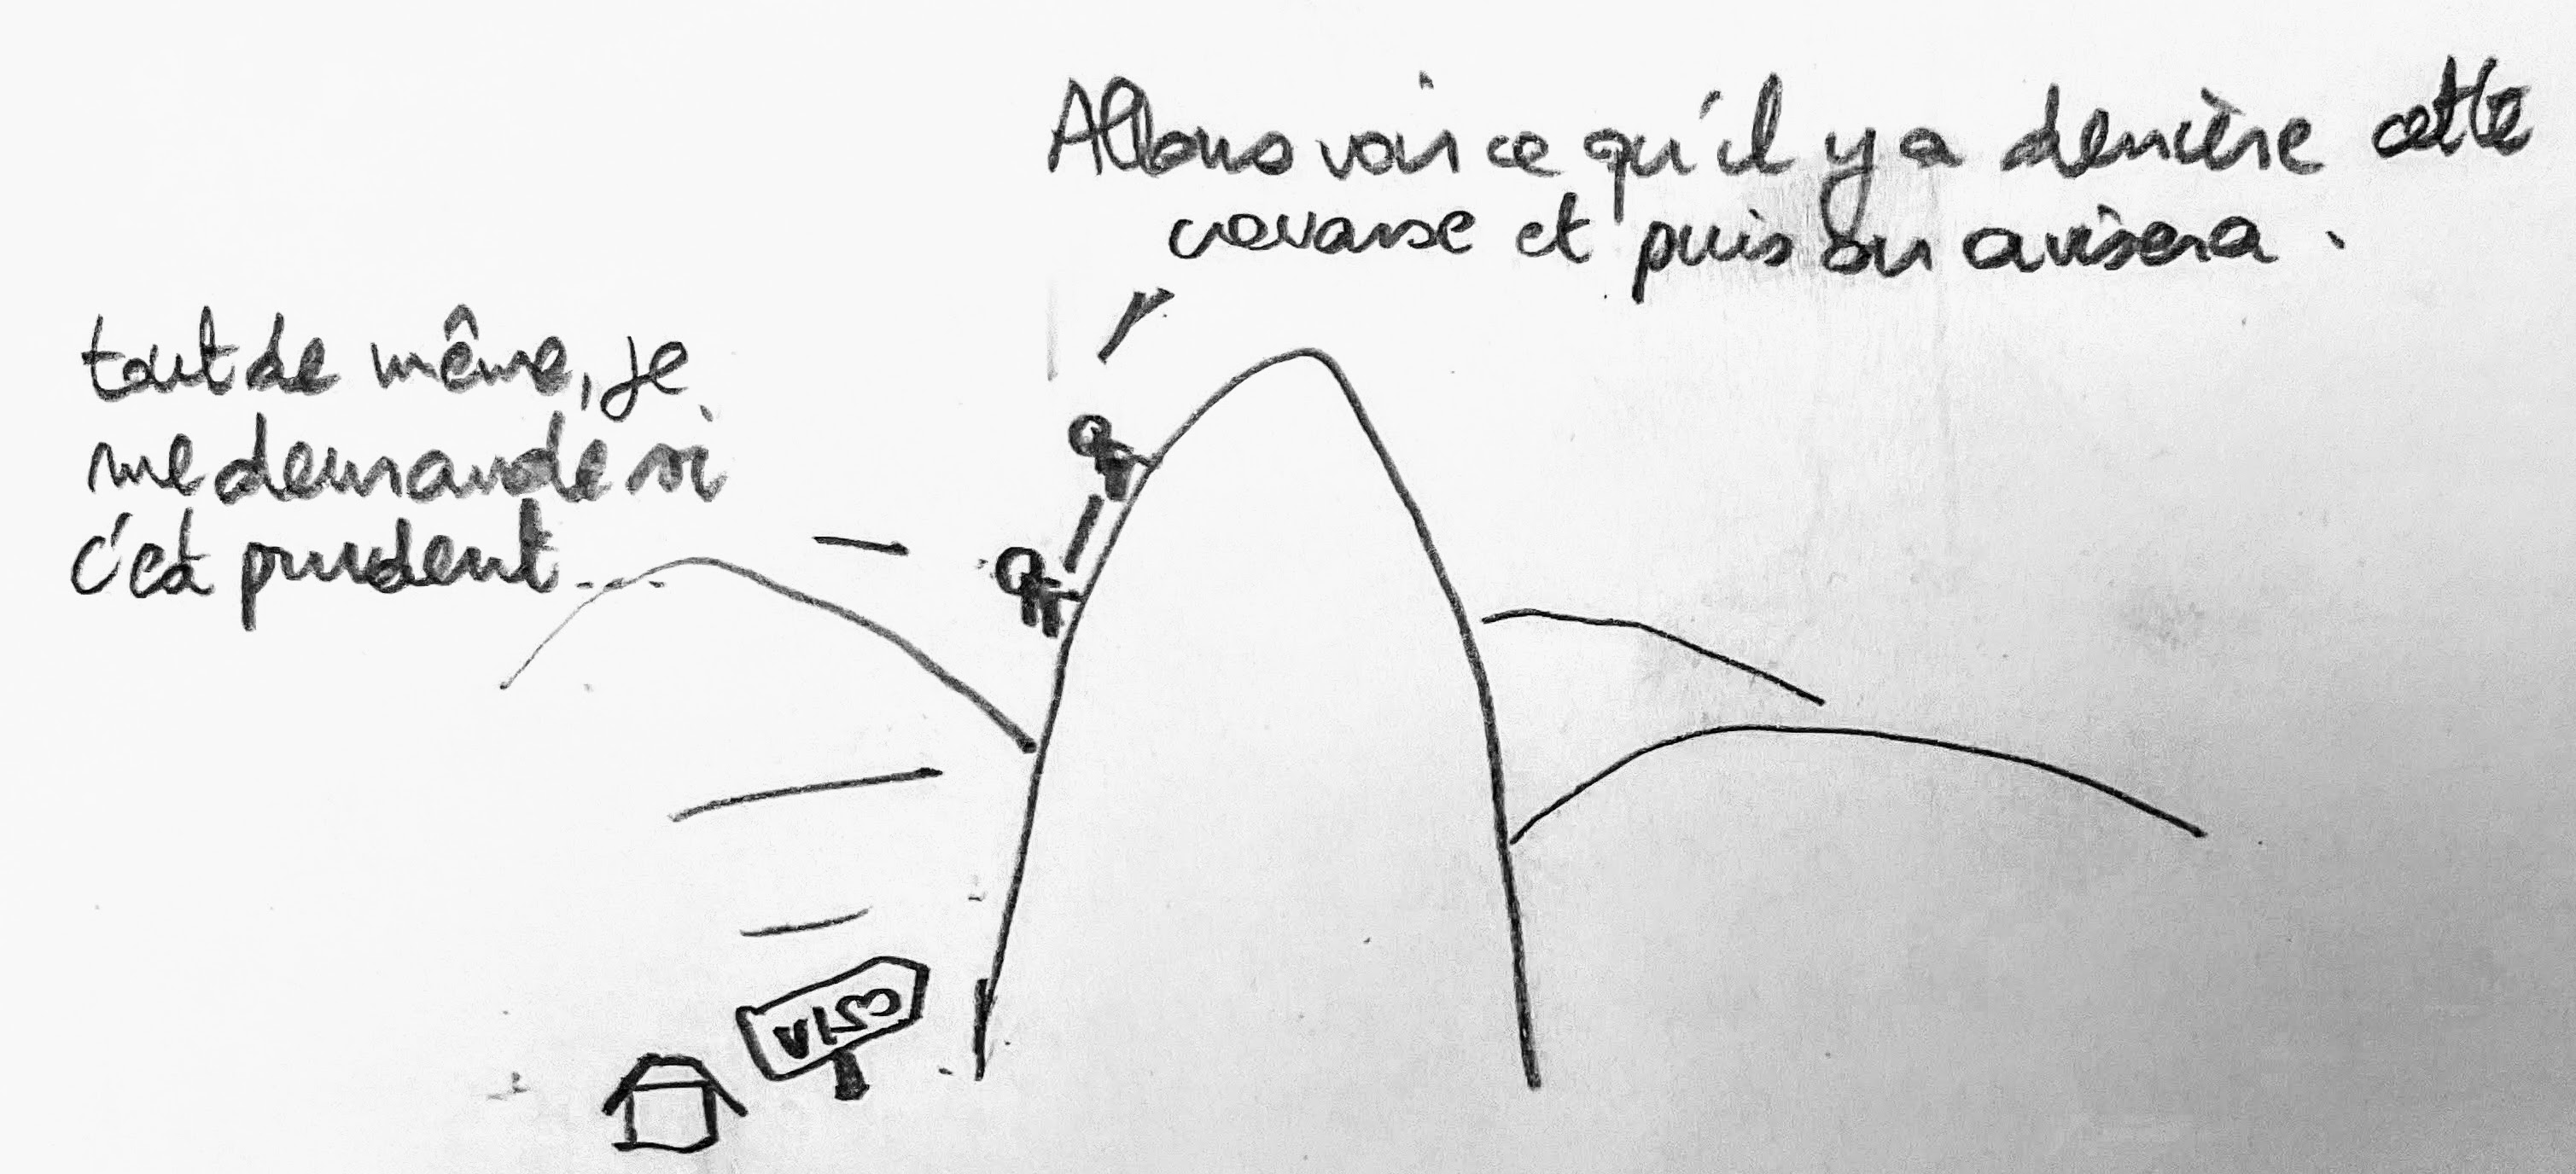 Allons voir ce qu'il y a derrière cette
crevasse et puis on avisera.
tout de même, je
me demande si
c'est prudent...